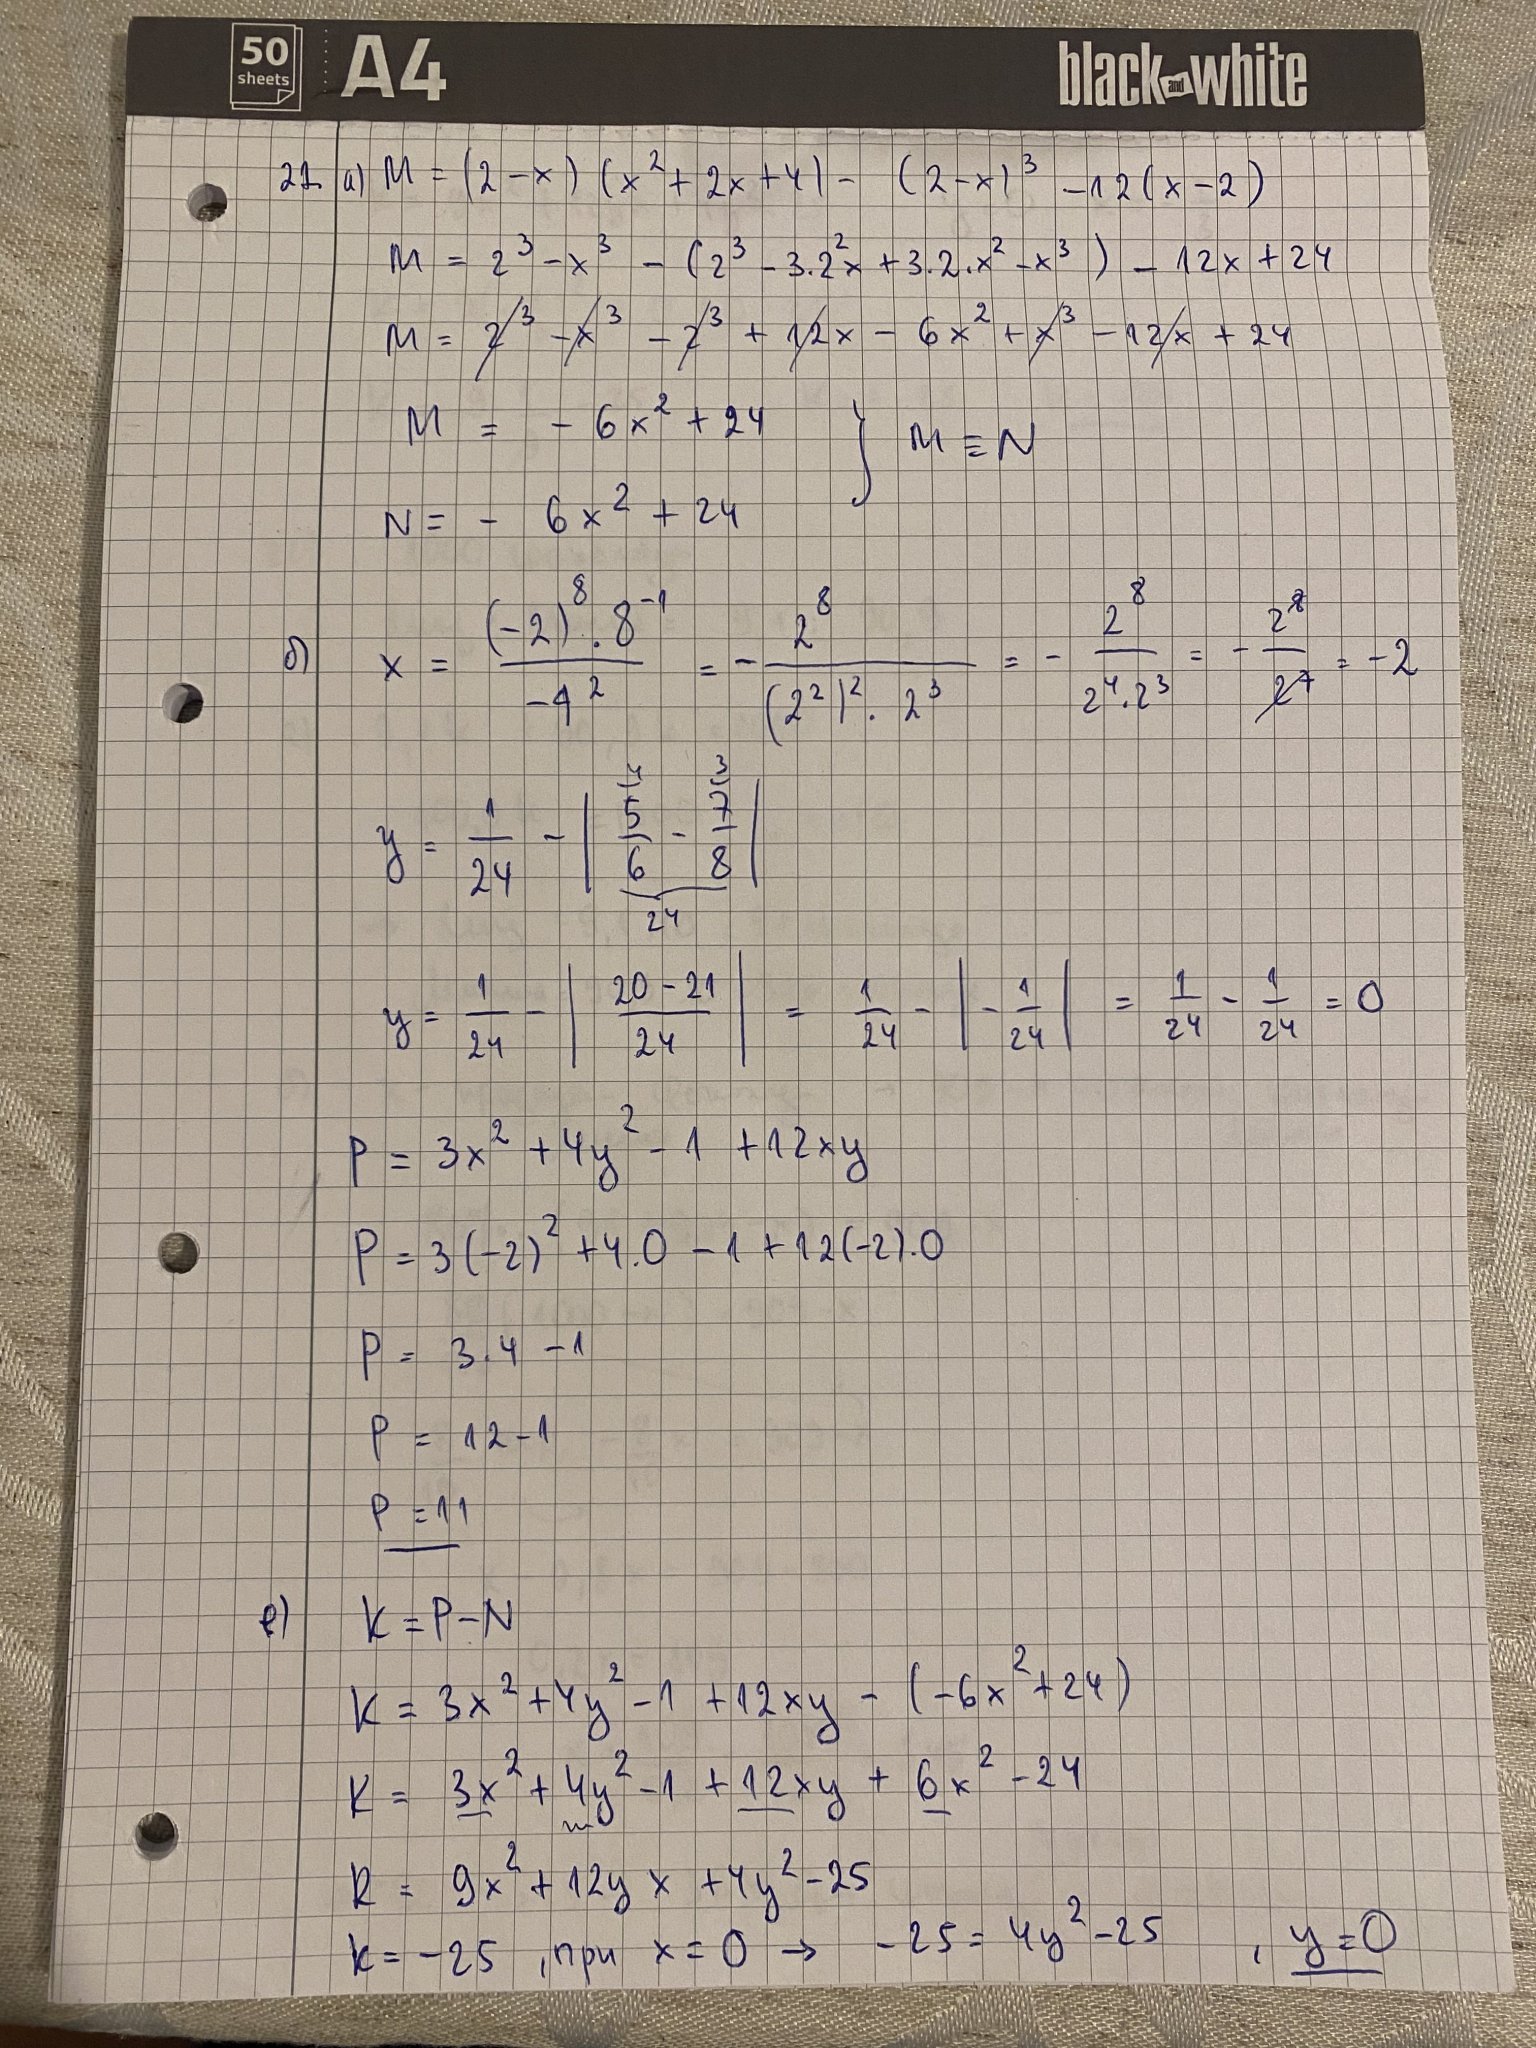 50 sheets A4 black and white
21. а) M = (2-x)(x²+2x+4) - (2-x)³ -12(x-2)
M = 2³-x³ - (2³-3.2²x+3.2.x²-x³) - 12x+24
M = 2³ -x³ - 2³ + 12x - 6x² + x³ - 12x + 24
M = - 6x² + 24 } M ≡ N
N = - 6x² + 24
б) x = ((-2)⁸.8⁻¹)/(-4²) = - 2⁸/((2²)².2³) = - 2⁸/(2⁴.2³) = - 2⁸/2⁷ = -2
y = 1/24 - |5/6 - 7/8|
4 3
24
y = 1/24 - |(20-21)/24| = 1/24 - |-1/24| = 1/24 - 1/24 = 0
P = 3x² + 4y² - 1 + 12xy
P = 3(-2)² + 4.0 - 1 + 12(-2).0
P = 3.4 - 1
P = 12 - 1
P = 11
в) K = P-N
K = 3x² + 4y² - 1 + 12xy - (-6x²+24)
K = 3x² + 4y² - 1 + 12xy + 6x² - 24
K = 9x² + 12yx + 4y² - 25
K = -25, при x = 0 → -25 = 4y² - 25, y = 0